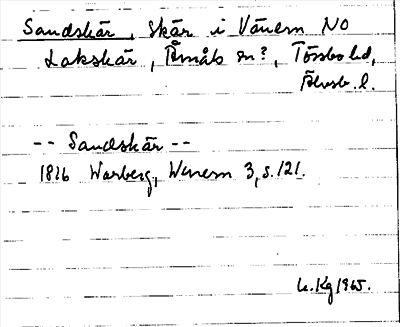 Sandskär, skär i Vänern NO
Lakskär, Åmåls sn?, Tössbo hd,
Älvsb. l.
-- Sandskär --
1816 Warberg, Wenern 3, s. 121.
Kg 1965.